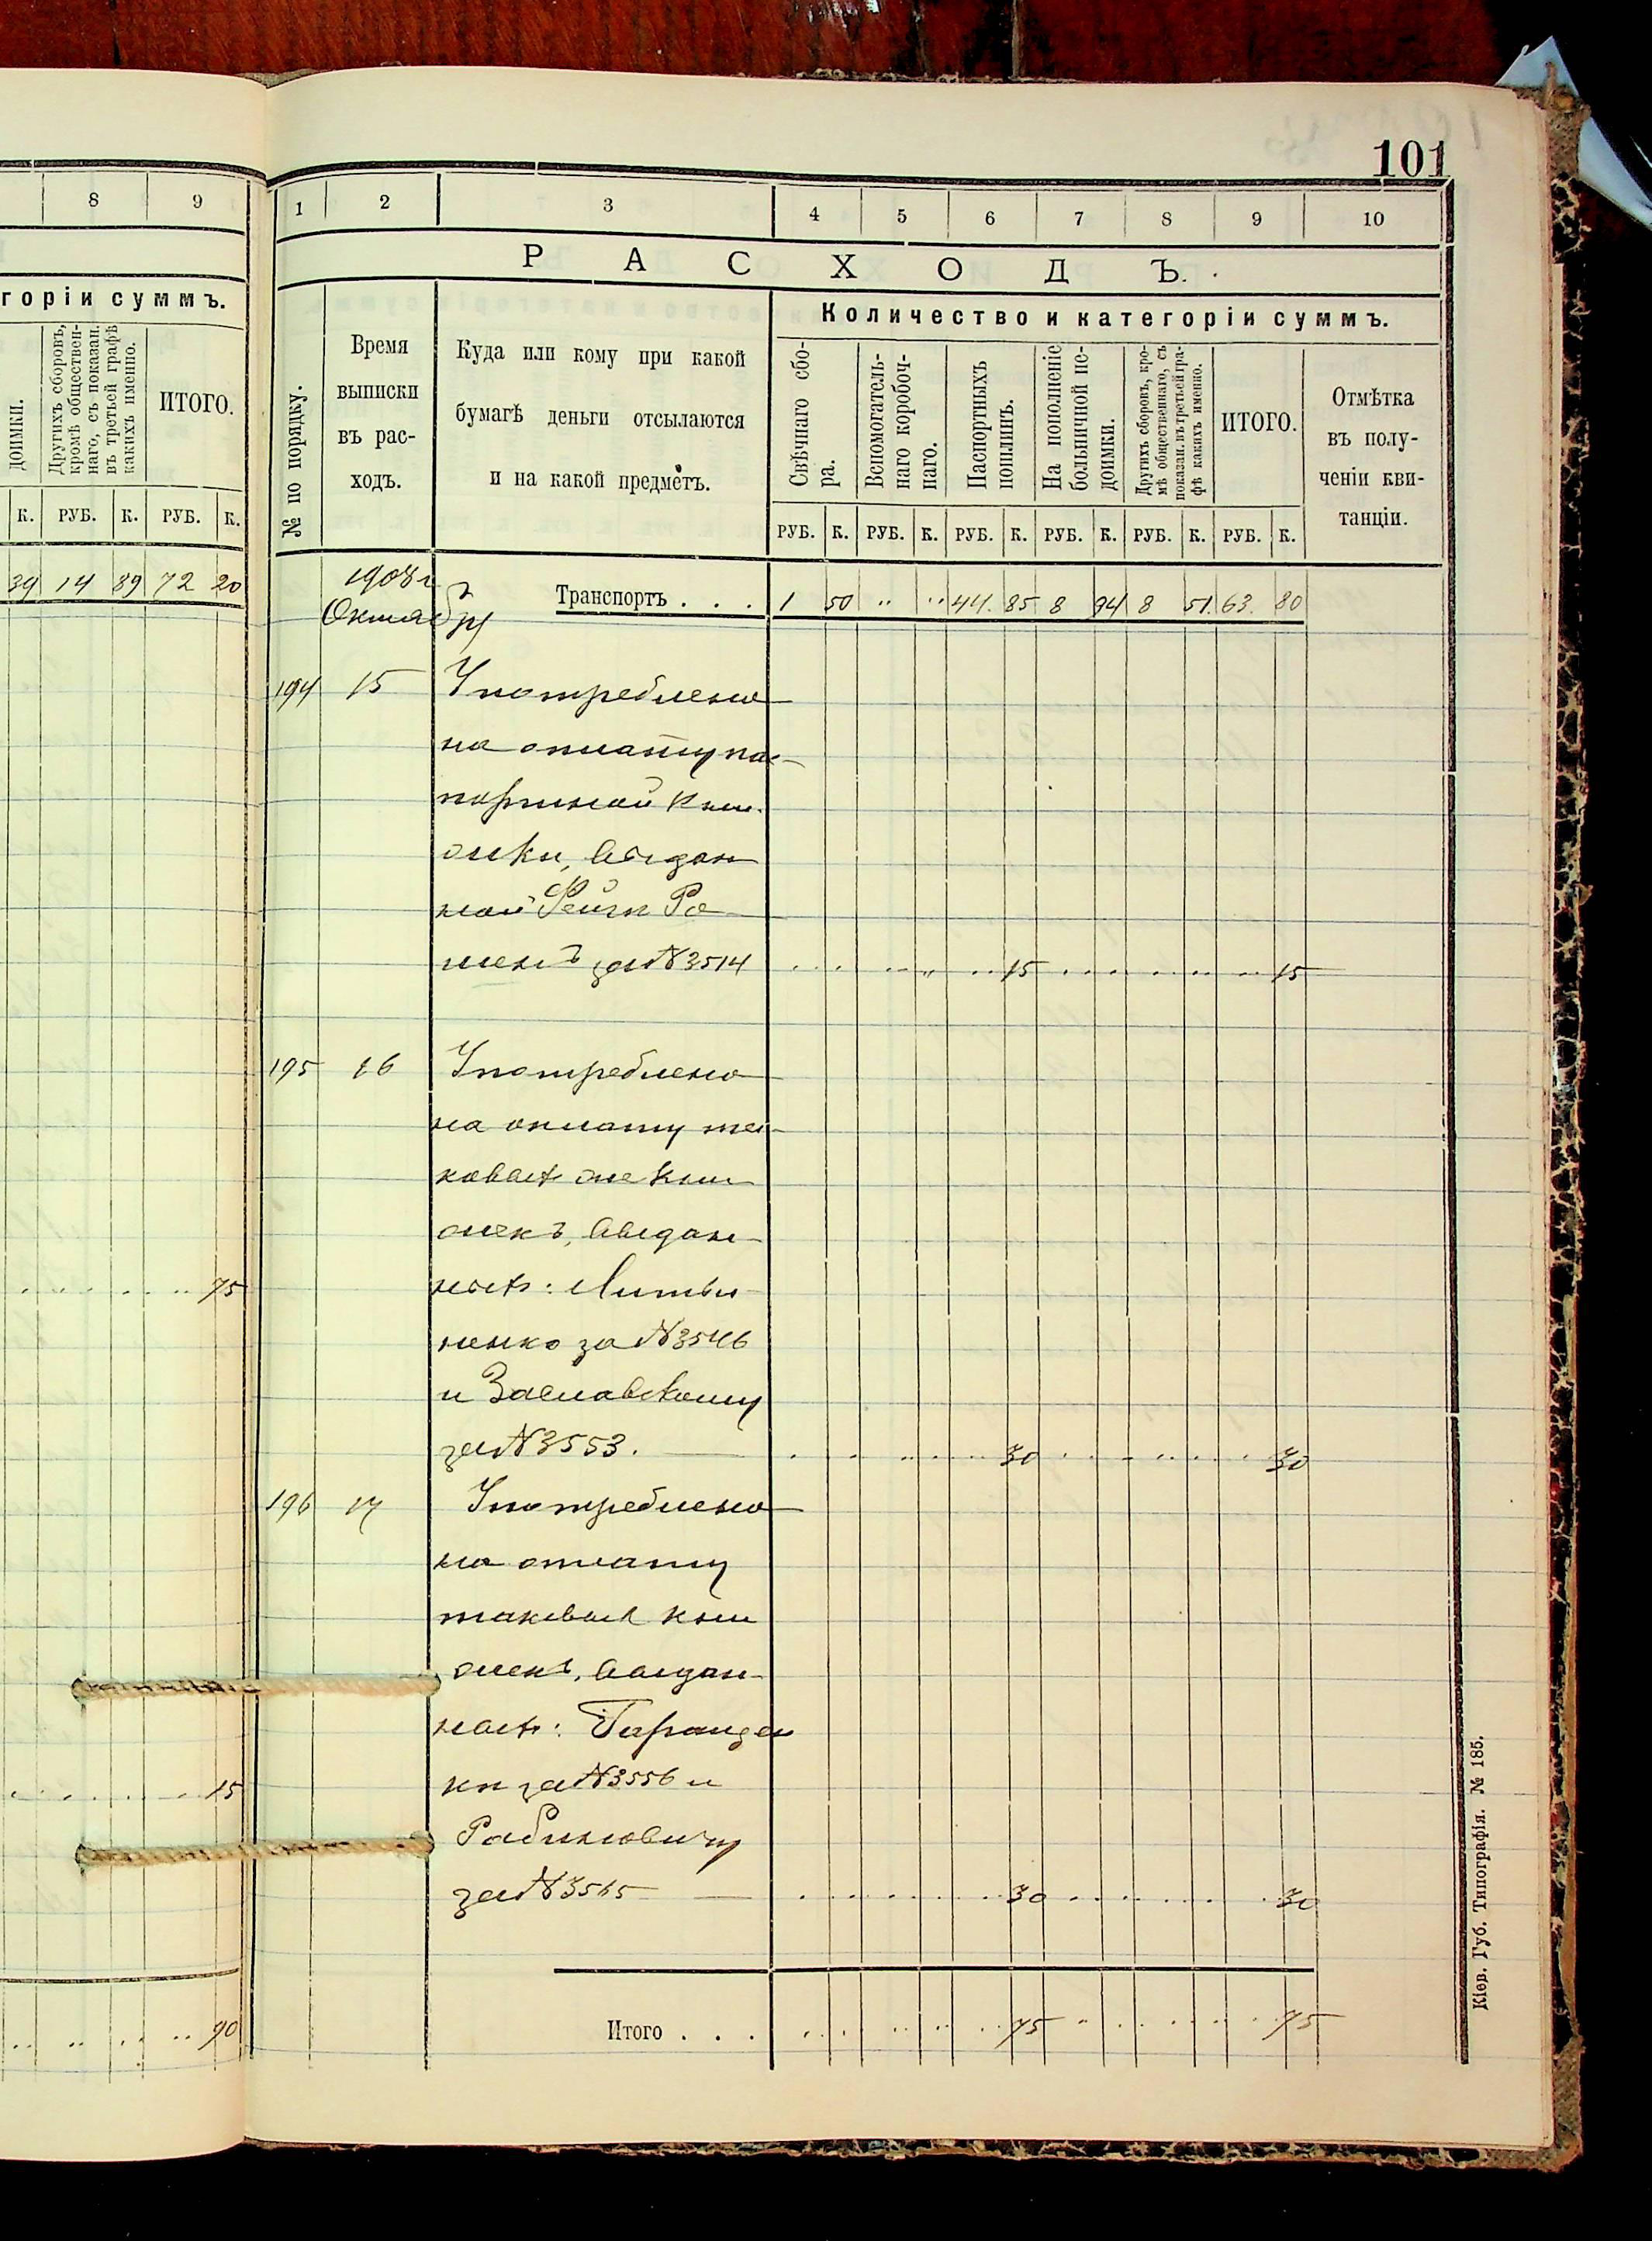 101
8 9
горіи суммъ.
доимки.
Другихъ сборовъ,
кромѣ обществен-
наго, съ показан.
въ третьей графѣ
какихъ именно.
ИТОГО.
К. РУБ. К. РУБ. К.
39 14 89 72 20
75
15
90
1 2 3 4 5 6 7 8 9 10
РАСХОДЪ.
№ по порядку.
Время
выписки
въ рас-
ходъ.
Куда или кому при какой
бумагѣ деньги отсылаются
и на какой предметъ.
Количество и категоріи суммъ.
Свѣчнаго сбо-
ра.
Вспомогатель-
наго коробоч-
наго.
Паспортныхъ
пошлинъ.
На пополненіе
больничной не-
доимки.
Другихъ сборовъ, кро-
мѣ общественнаго, съ
показан. въ третьей гра-
фѣ какихъ именно.
ИТОГО.
Отмѣтка
въ полу-
ченіи кви-
танціи.
РУБ. К. РУБ. К. РУБ. К. РУБ. К. РУБ. К. РУБ. К.
1908 г
Октября
Транспортъ . . . 1 50 " " 44. 85 8 94 8 51. 63. 80
194 15 Употреблено
на оплату пас-
портной кни-
жки, выдан
ной Фейги Ро
за № 3514 15 15
195 16 Употреблено
на оплату та-
ковыхъ же кни
жекъ, выдан-
ныхъ: Литви
ненко за № 3546
и Заславскому
за № 3553. 30 30
196 17 Употреблено
на оплату
таковыхъ кни
жекъ, выдан-
ныхъ:
за № 3556 и
Рабиновичу
за № 3565 30 30
Итого . . . 75 75
Кіев. Губ. Типографія. № 185.